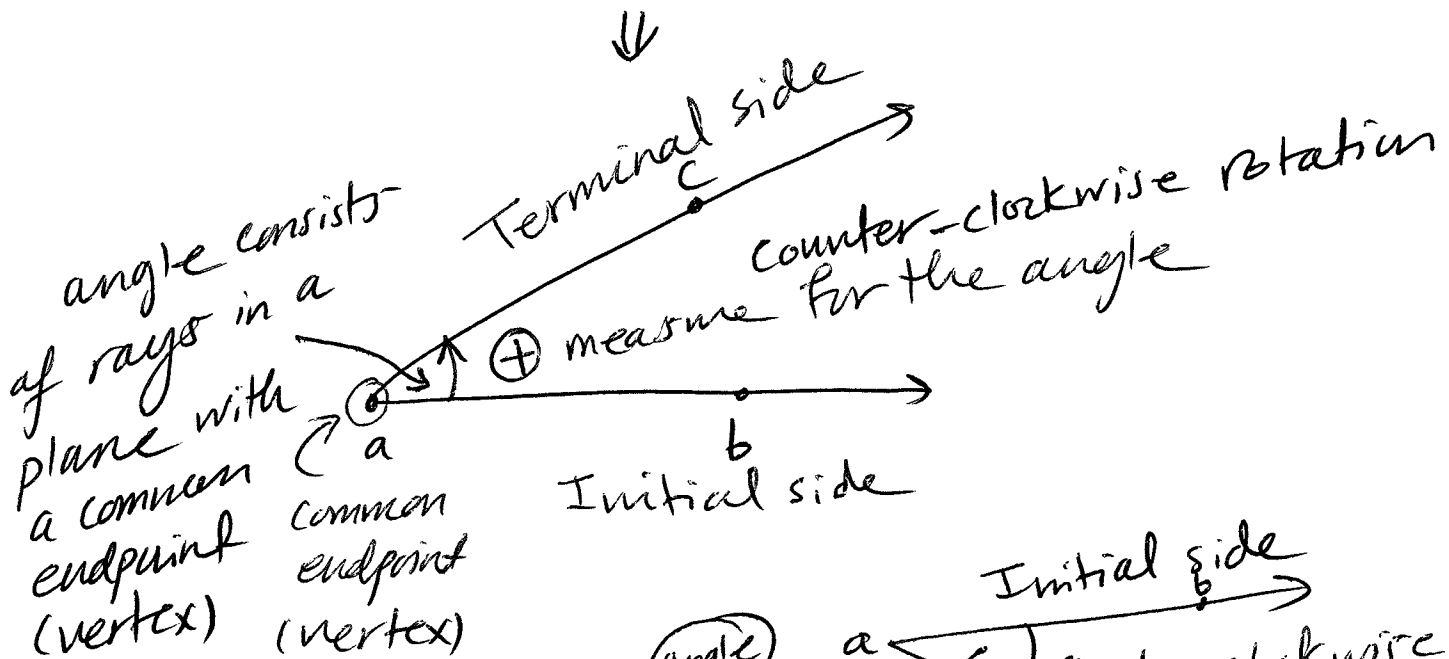 Terminal side
c
angle consists
of rays in a
plane with
a common
endpoint
(vertex)
counter-clockwise rotation
+ measure for the angle
a
b
common
endpoint
(vertex)
Initial side
Initial side
b
angle
a